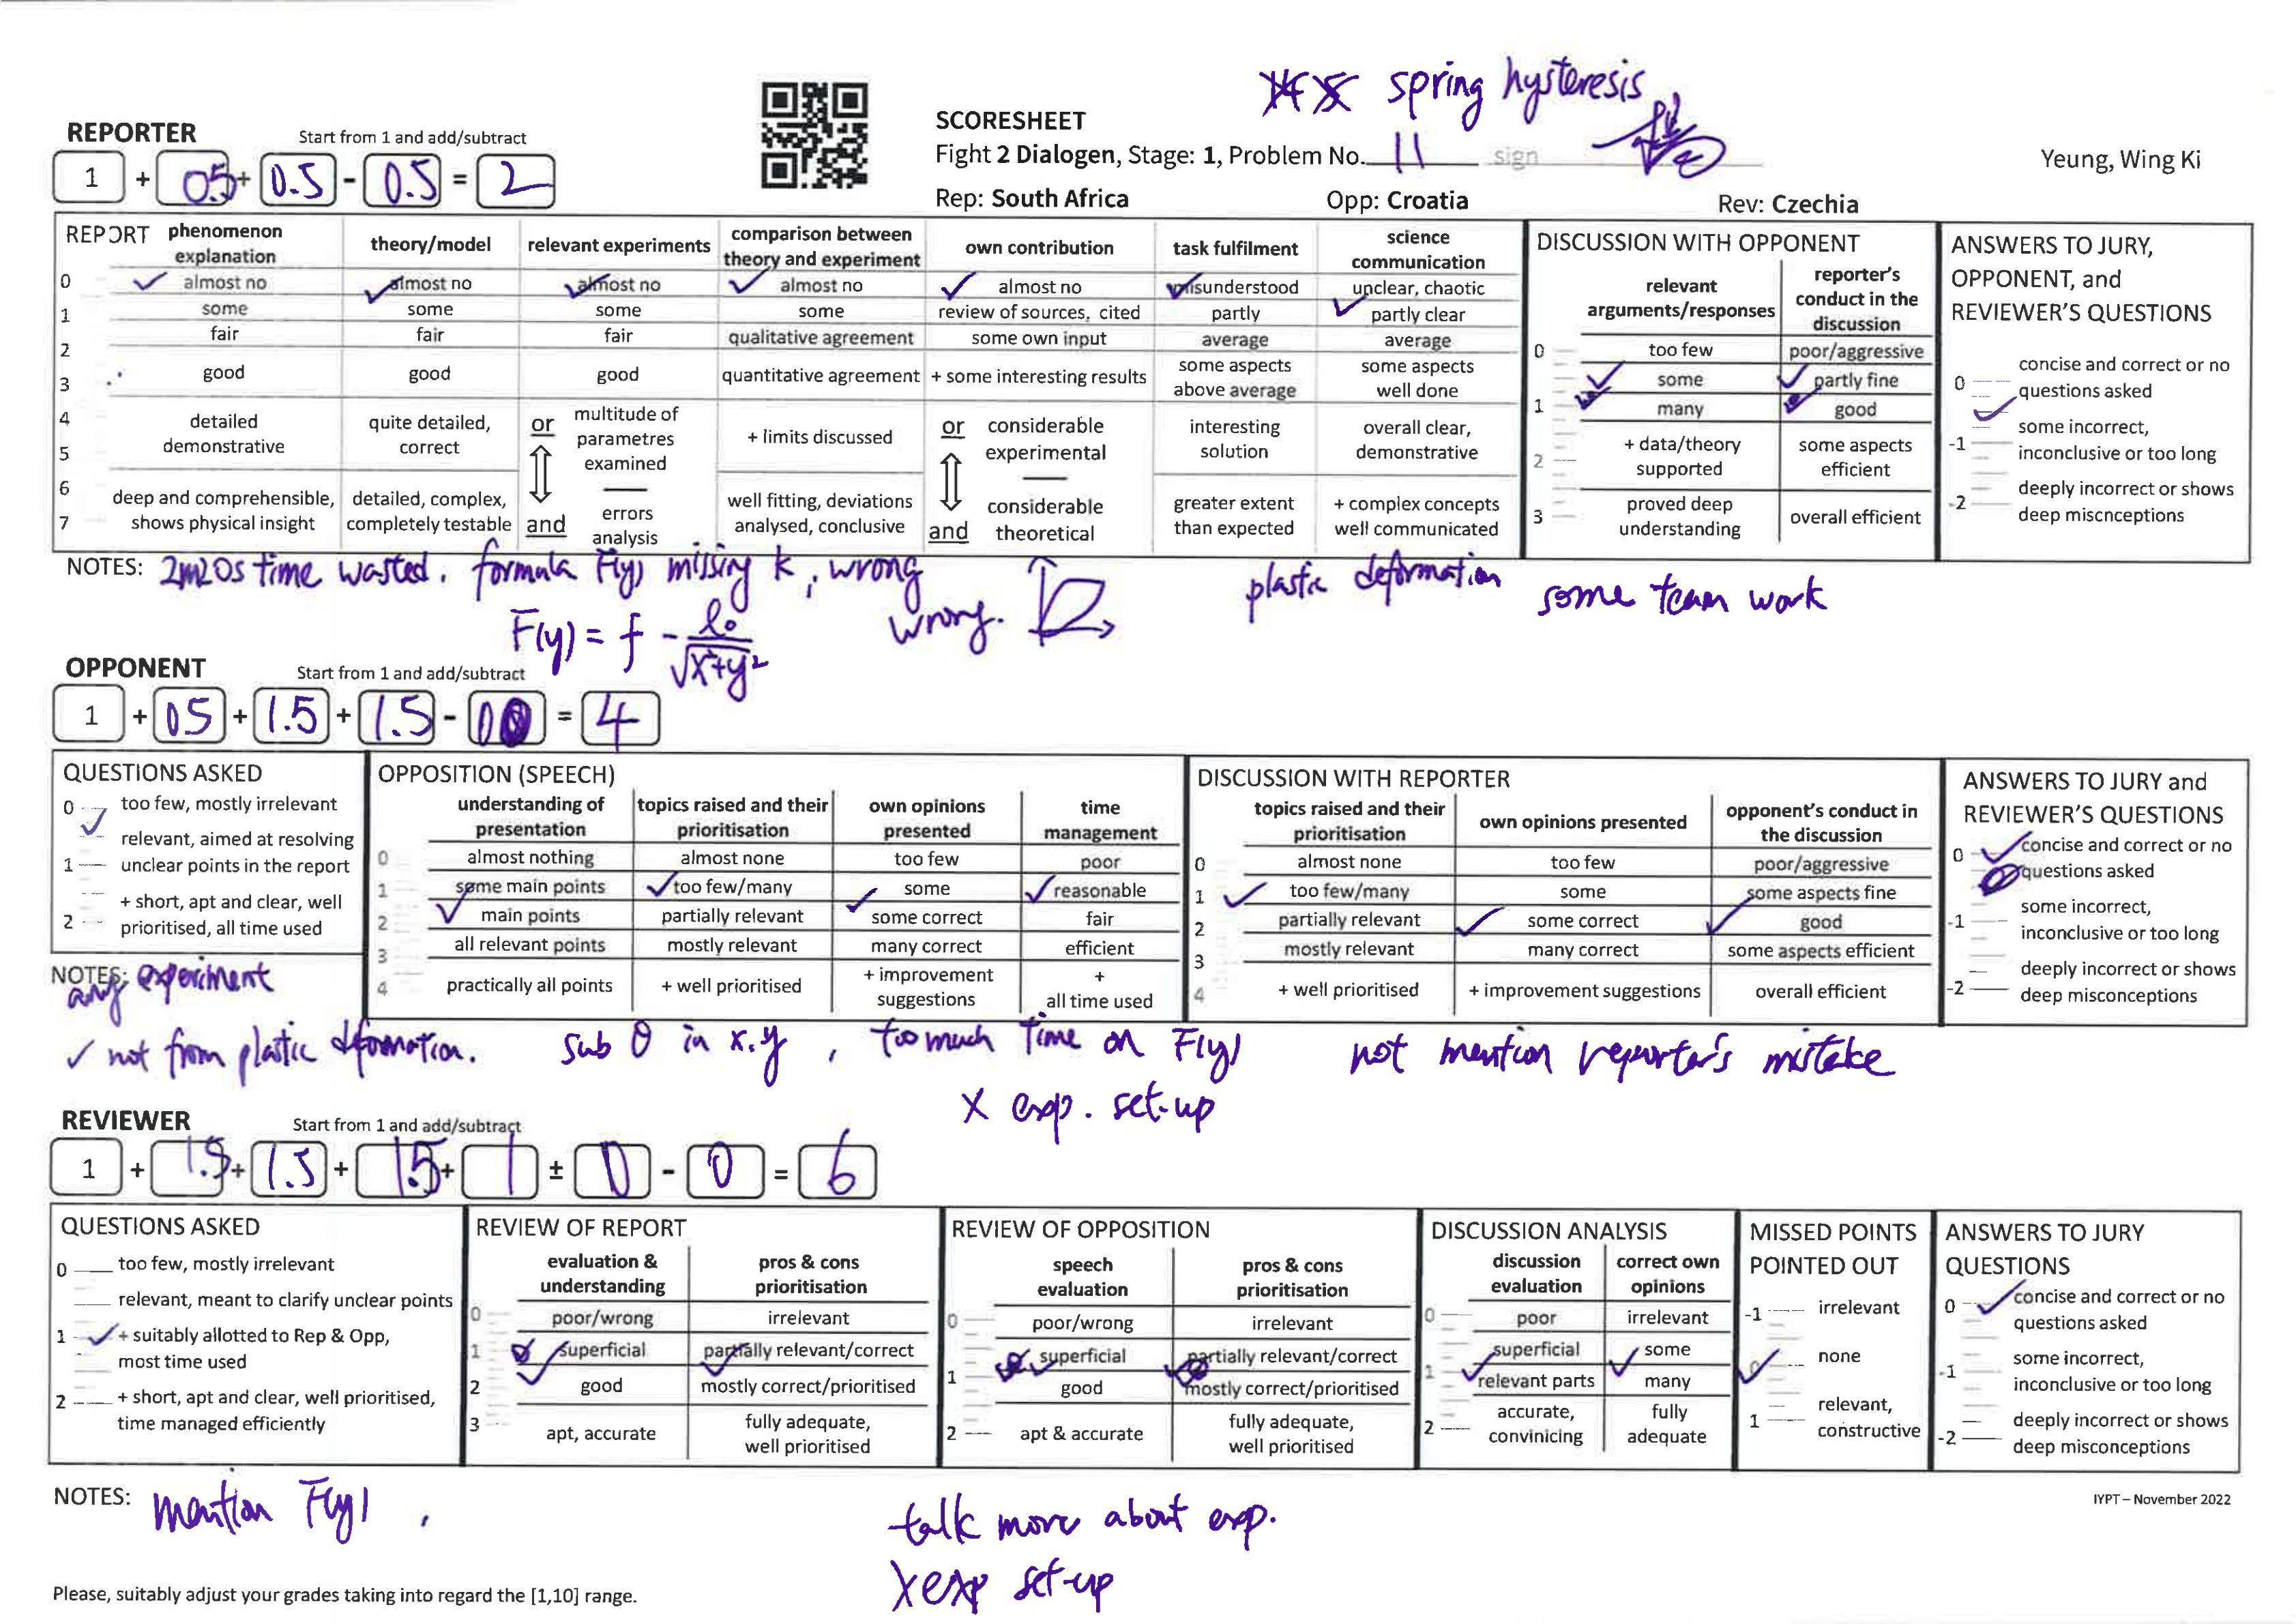 spring hysteresis
SCORESHEET
Fight 2 Dialogen, Stage: 1, Problem No. 11 sign
Yeung, Wing Ki
Rep: South Africa Opp: Croatia Rev: Czechia
REPORTER Start from 1 and add/subtract
1 + 0.5 + 0.5 - 0.5 = 2
REPORT
phenomenon explanation
theory/model
relevant experiments
comparison between theory and experiment
own contribution
task fulfilment
science communication
0 almost no almost no almost no almost no almost no misunderstood unclear, chaotic
1 some some some some review of sources, cited partly partly clear
2 fair fair fair qualitative agreement some own input average average
3 good good good quantitative agreement + some interesting results some aspects above average some aspects well done
4
5
detailed demonstrative
quite detailed, correct
or multitude of parametres examined
+ limits discussed
or considerable experimental
interesting solution
overall clear, demonstrative
6
7
deep and comprehensible, shows physical insight
detailed, complex, completely testable
and errors analysis
well fitting, deviations analysed, conclusive
and considerable theoretical
greater extent than expected
+ complex concepts well communicated
DISCUSSION WITH OPPONENT
relevant arguments/responses
reporter's conduct in the discussion
0 too few poor/aggressive
some partly fine
1 many good
2 + data/theory supported some aspects efficient
3 proved deep understanding overall efficient
ANSWERS TO JURY,
OPPONENT, and
REVIEWER'S QUESTIONS
0 concise and correct or no questions asked
-1 some incorrect, inconclusive or too long
-2 deeply incorrect or shows deep miscnceptions
NOTES: 2m20s time wasted. formula F(y) missing k, wrong
F(y) = f - l₀/√x²+y²
wrong.
plastic deformation
some team work
OPPONENT Start from 1 and add/subtract
1 + 0.5 + 1.5 + 1.5 - 0 = 4
QUESTIONS ASKED
0 too few, mostly irrelevant
relevant, aimed at resolving
1 unclear points in the report
+ short, apt and clear, well
2 prioritised, all time used
OPPOSITION (SPEECH)
understanding of presentation
topics raised and their prioritisation
own opinions presented
time management
0 almost nothing almost none too few poor
1 some main points too few/many some reasonable
2 main points partially relevant some correct fair
3 all relevant points mostly relevant many correct efficient
4 practically all points + well prioritised + improvement suggestions + all time used
DISCUSSION WITH REPORTER
topics raised and their prioritisation
own opinions presented
opponent's conduct in the discussion
0 almost none too few poor/aggressive
1 too few/many some some aspects fine
2 partially relevant some correct good
3 mostly relevant many correct some aspects efficient
4 + well prioritised + improvement suggestions overall efficient
ANSWERS TO JURY and
REVIEWER'S QUESTIONS
0 concise and correct or no questions asked
-1 some incorrect, inconclusive or too long
-2 deeply incorrect or shows deep misconceptions
NOTES: any experiment
✓ not from plastic deformation.
sub θ in x,y, too much time on F(y)
X exp. set-up
not mention reporter's mistake
REVIEWER Start from 1 and add/subtract
1 + 1.5 + 1.5 + 1.5 + 1 ± 0 - 0 = 6
QUESTIONS ASKED
0 too few, mostly irrelevant
relevant, meant to clarify unclear points
1 + suitably allotted to Rep & Opp,
most time used
2 + short, apt and clear, well prioritised,
time managed efficiently
REVIEW OF REPORT
evaluation & understanding
pros & cons prioritisation
0 poor/wrong irrelevant
1 superficial partially relevant/correct
2 good mostly correct/prioritised
3 apt, accurate fully adequate, well prioritised
REVIEW OF OPPOSITION
speech evaluation
pros & cons prioritisation
0 poor/wrong irrelevant
superficial partially relevant/correct
1 good mostly correct/prioritised
2 apt & accurate fully adequate, well prioritised
DISCUSSION ANALYSIS
discussion evaluation
correct own opinions
0 poor irrelevant
superficial some
1 relevant parts many
2 accurate, convinicing fully adequate
MISSED POINTS
POINTED OUT
-1 irrelevant
0 none
1 relevant, constructive
ANSWERS TO JURY
QUESTIONS
0 concise and correct or no questions asked
-1 some incorrect, inconclusive or too long
-2 deeply incorrect or shows deep misconceptions
NOTES: mention F(y),
talk more about exp.
X exp set-up
IYPT – November 2022
Please, suitably adjust your grades taking into regard the [1,10] range.